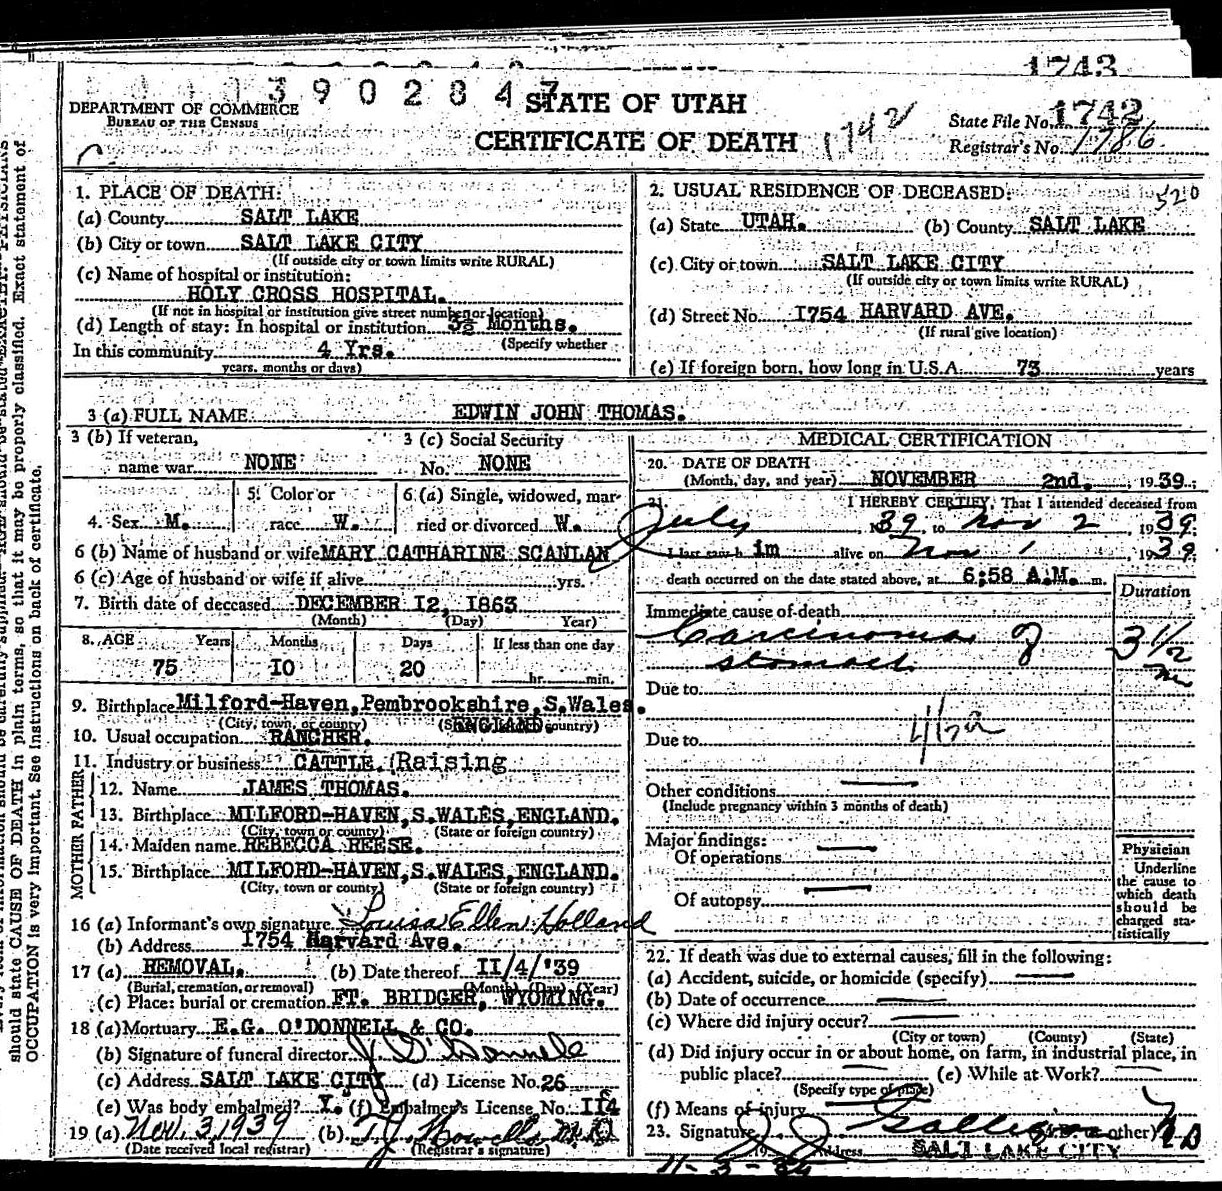 1743
3902847
DEPARTMENT OF COMMERCE
BUREAU OF THE CENSUS
STATE OF UTAH
CERTIFICATE OF DEATH
1742
State File No. 1742
Registrar's No. 1786
520
1. PLACE OF DEATH:
(a) County SALT LAKE
(b) City or town SALT LAKE CITY
(If outside city or town limits write RURAL)
(c) Name of hospital or institution:
HOLY CROSS HOSPITAL.
(If not in hospital or institution give street number or location)
(d) Length of stay: In hospital or institution 3½ Months.
(Specify whether
In this community 4 Yrs.
years, months or days)
2. USUAL RESIDENCE OF DECEASED:
(a) State UTAH. (b) County SALT LAKE
(c) City or town SALT LAKE CITY
(If outside city or town limits write RURAL)
(d) Street No. I754 HARVARD AVE.
(If rural give location)
(e) If foreign born, how long in U.S.A. 73 years
3 (a) FULL NAME EDWIN JOHN THOMAS.
3 (b) If veteran, name war NONE
3 (c) Social Security No. NONE
4. Sex M.
5. Color or race W.
6 (a) Single, widowed, married or divorced W.
6 (b) Name of husband or wife MARY CATHARINE SCANLAN
6 (c) Age of husband or wife if alive yrs.
7. Birth date of deceased DECEMBER I2, I863
(Month) (Day) Year)
8. AGE Years Months Days If less than one day
75 IO 20 hr. min.
9. Birthplace Milford-Haven, Pembrookshire, S.Wales.
(City, town, or county) ENGLAND.
10. Usual occupation RANCHER.
11. Industry or business CATTLE (Raising
FATHER
12. Name JAMES THOMAS.
13. Birthplace MILFORD-HAVEN, S.WALES, ENGLAND.
(City, town or county) (State or foreign country)
MOTHER
14. Maiden name REBECCA REESE.
15. Birthplace MILFORD-HAVEN, S.WALES, ENGLAND.
(City, town or county) (State or foreign country)
16 (a) Informant's own signature Louisa Ellen Holland
(b) Address I754 Harvard Ave.
17 (a) REMOVAL. (b) Date thereof II/4/'39
(Burial, cremation, or removal) (Month) (Day) (Year)
(c) Place: burial or cremation FT. BRIDGER, WYOMING.
18 (a) Mortuary E.G. O'DONNELL & CO.
(b) Signature of funeral director J O'Donnell
(c) Address SALT LAKE CITY (d) License No. 26
(e) Was body embalmed? Y. (f) Embalmer's License No. II4
19 (a) Nov. 3, 1939 (b) T J Howells M.D
(Date received local registrar) (Registrar's signature)
MEDICAL CERTIFICATION
20. DATE OF DEATH
(Month, day, and year) NOVEMBER 2nd. , 1939.
21. I HEREBY CERTIFY, That I attended deceased from
July 1939 to Nov 2 1939.
I last saw h im alive on Nov 1 1939
death occurred on the date stated above, at 6;58 A.M. m.
Duration
Immediate cause of death
Carcinoma of stomach 3 1/2 m
Due to
Due to
Other conditions
(Include pregnancy within 3 months of death)
Major findings:
Of operations
Of autopsy
Physician
Underline
the cause to
which death
should be
charged sta-
tistically
22. If death was due to external causes, fill in the following:
(a) Accident, suicide, or homicide (specify)
(b) Date of occurrence
(c) Where did injury occur?
(City or town) (County) (State)
(d) Did injury occur in or about home, on farm, in industrial place, in
public place? (e) While at Work?
(Specify type of place)
(f) Means of injury
23. Signature J J Galligan M D
Address SALT LAKE CITY
11-3-39
should state CAUSE OF DEATH in plain terms, so that it may be properly classified. Exact statement of
OCCUPATION is very important. See instructions on back of certificate.